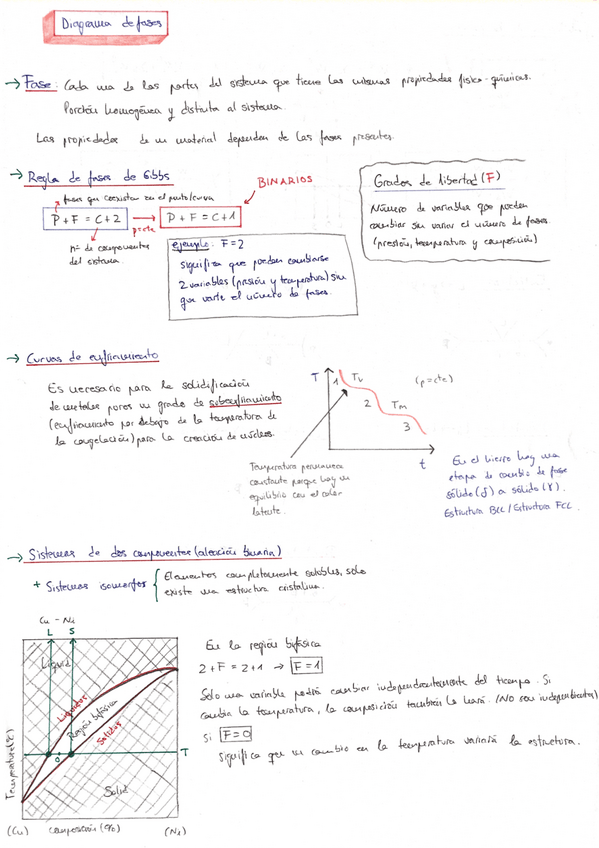 Diagrama de fases
→ Fase: Cada una de las partes del sistema que tiene las mismas propiedades físico-químicas.
Porción homogénea y distinta al sistema.
Las propiedades de un material dependen de las fases presentes.
→ Regla de fases de Gibbs
fases que coexisten en el punto/curva
P+F = C+2 → P+F = C+1
p=cte
BINARIOS
nº de componentes
del sistema.
ejemplo: F=2
significa que pueden cambiarse
2 variables (presión y temperatura) sin
que varíe el número de fases.
Grados de libertad (F)
Número de variables que pueden
cambiar sin variar el número de fases
(presión, temperatura y composición)
→ Curvas de enfriamiento
Es necesario para la solidificación
de metales puros un grado de subenfriamiento
(enfriamiento por debajo de la temperatura de
la congelación) para la creación de núcleos.
T
1
Tv
(p=cte)
2
Tm
3
t
Temperatura permanece
constante porque hay un
equilibrio con el calor
latente.
En el hierro hay una
etapa de cambio de fase
sólido (δ) a sólido (γ).
Estructura BCC/Estructura FCC.
→ Sistemas de dos componentes (aleación binaria)
+ Sistemas isomorfos { Elementos completamente solubles, solo
existe una estructura cristalina.
Cu - Ni
L S
Liquid
Liquidus
Región bifásica
Solidus
Solid
T
Temperatura (ºC)
(Cu) composición (%) (Ni)
En la región bifásica
2+F = 2+1 → F=1
Solo una variable podrá cambiar independientemente del tiempo. Si
cambia la temperatura, la composición también lo hará. (NO son independientes)
Si F=0
significa que un cambio en la temperatura variaría la estructura.